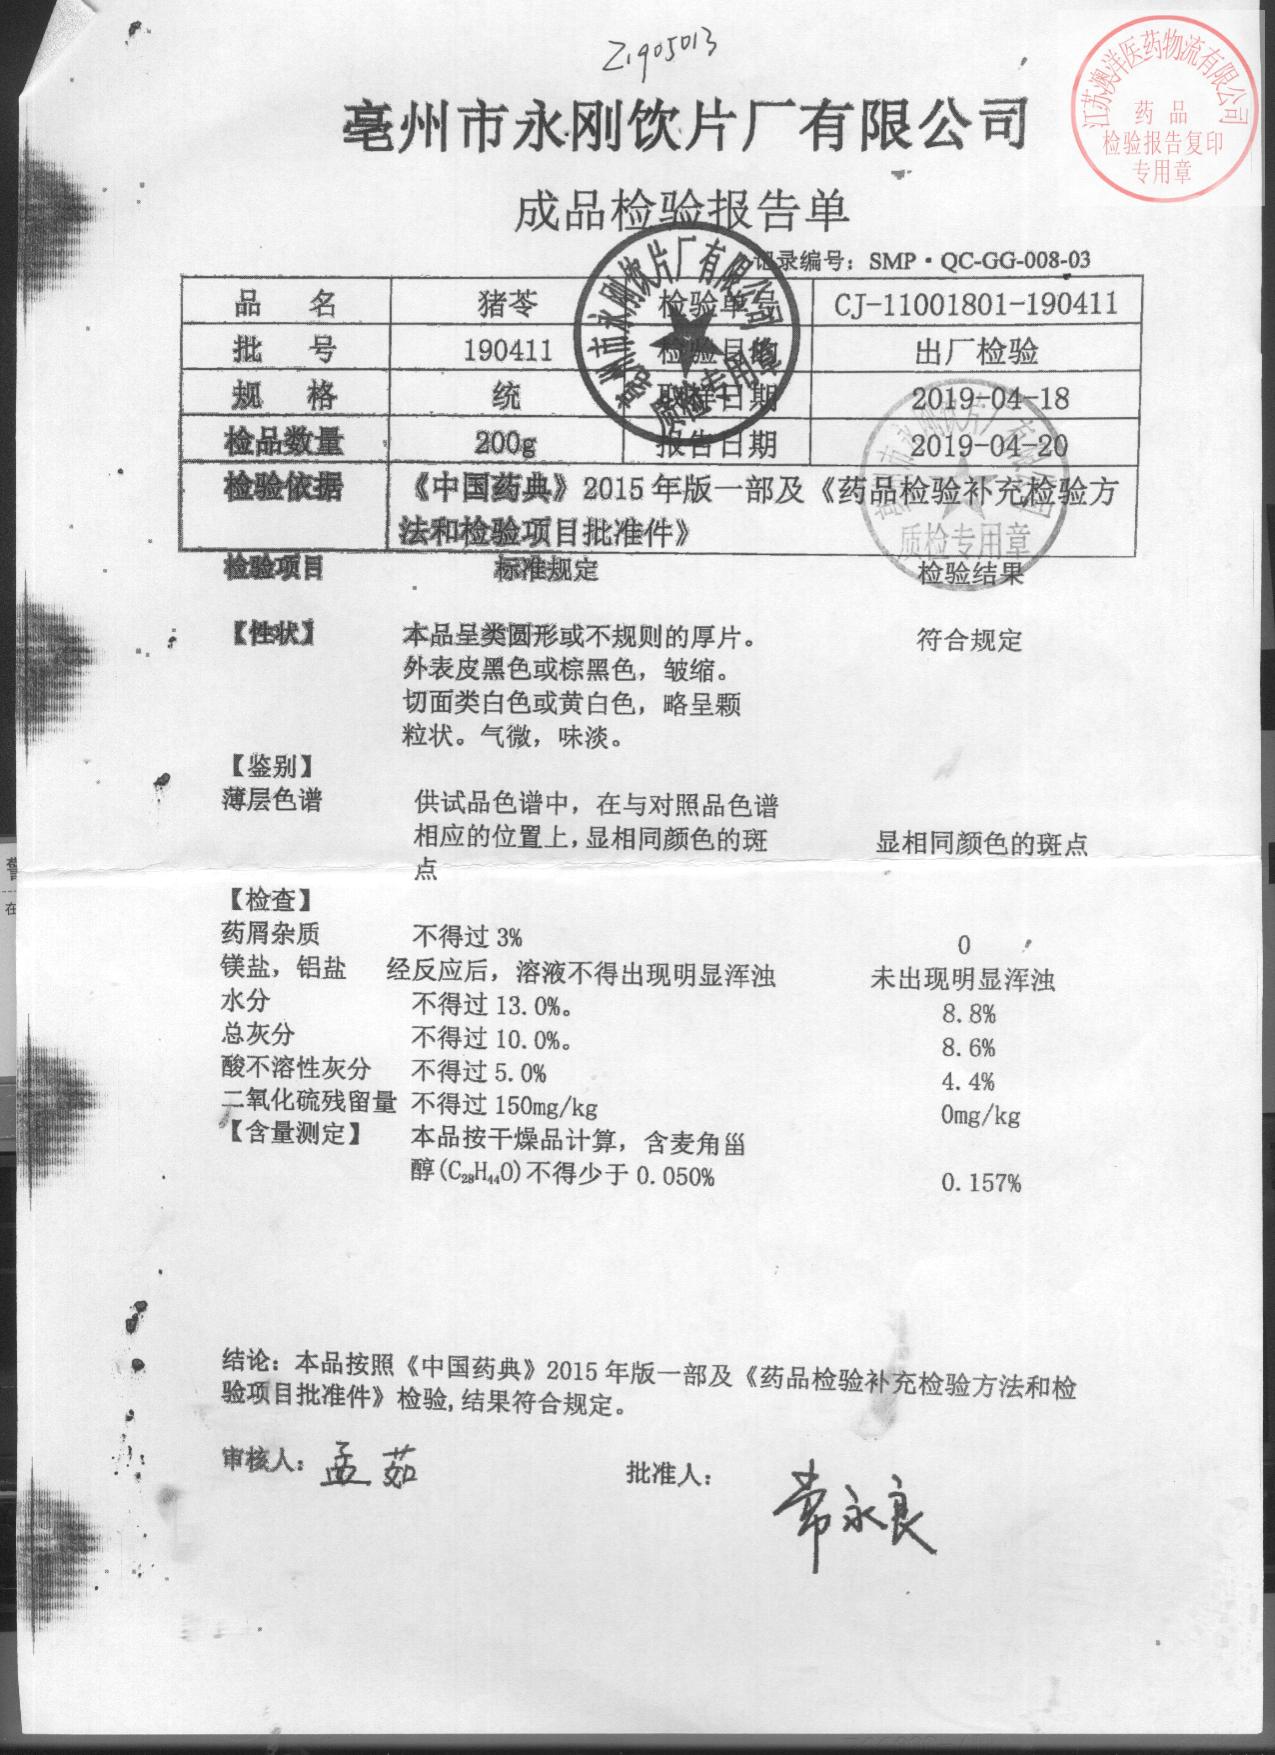 Z1905013
江苏澳洋医药物流有限公司
药品
检验报告复印
专用章
亳州市永刚饮片厂有限公司
成品检验报告单
记录编号：SMP·QC-GG-008-03
品 名 猪苓 检验单号 CJ-11001801-190411
批 号 190411 检验目的 出厂检验
规 格 统 取样日期 2019-04-18
检品数量 200g 报告日期 2019-04-20
检验依据 《中国药典》2015年版一部及《药品检验补充检验方
法和检验项目批准件》
亳州市永刚饮片厂有限公司
质检专用章
亳州市永刚饮片厂有限公司
质检专用章
检验项目 标准规定 检验结果
【性状】 本品呈类圆形或不规则的厚片。 符合规定
外表皮黑色或棕黑色，皱缩。
切面类白色或黄白色，略呈颗
粒状。气微，味淡。
【鉴别】
薄层色谱 供试品色谱中，在与对照品色谱
相应的位置上，显相同颜色的斑 显相同颜色的斑点
点
【检查】
药屑杂质 不得过 3% 0
镁盐，铝盐 经反应后，溶液不得出现明显浑浊 未出现明显浑浊
水分 不得过 13.0%。 8.8%
总灰分 不得过 10.0%。 8.6%
酸不溶性灰分 不得过 5.0% 4.4%
二氧化硫残留量 不得过 150mg/kg 0mg/kg
【含量测定】 本品按干燥品计算，含麦角甾
醇(C₂₈H₄₄O)不得少于 0.050% 0.157%
结论：本品按照《中国药典》2015年版一部及《药品检验补充检验方法和检
验项目批准件》检验,结果符合规定。
审核人：孟茹 批准人：常永良